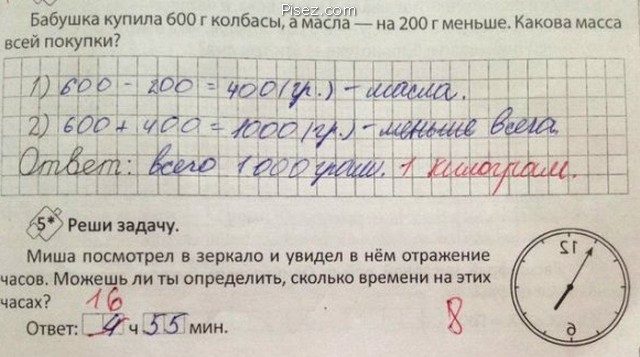 Pisez.com
Бабушка купила 600 г колбасы, а масла — на 200 г меньше. Какова масса
всей покупки?
1) 600 - 200 = 400 (гр.) - масла.
2) 600 + 400 = 1000 (гр.) - меньше всего.
Ответ: всего 1000 грам. 1 килограм.
5* Реши задачу.
Миша посмотрел в зеркало и увидел в нём отражение
часов. Можешь ли ты определить, сколько времени на этих
часах?
16
Ответ: 4 ч 55 мин.
8
12
6